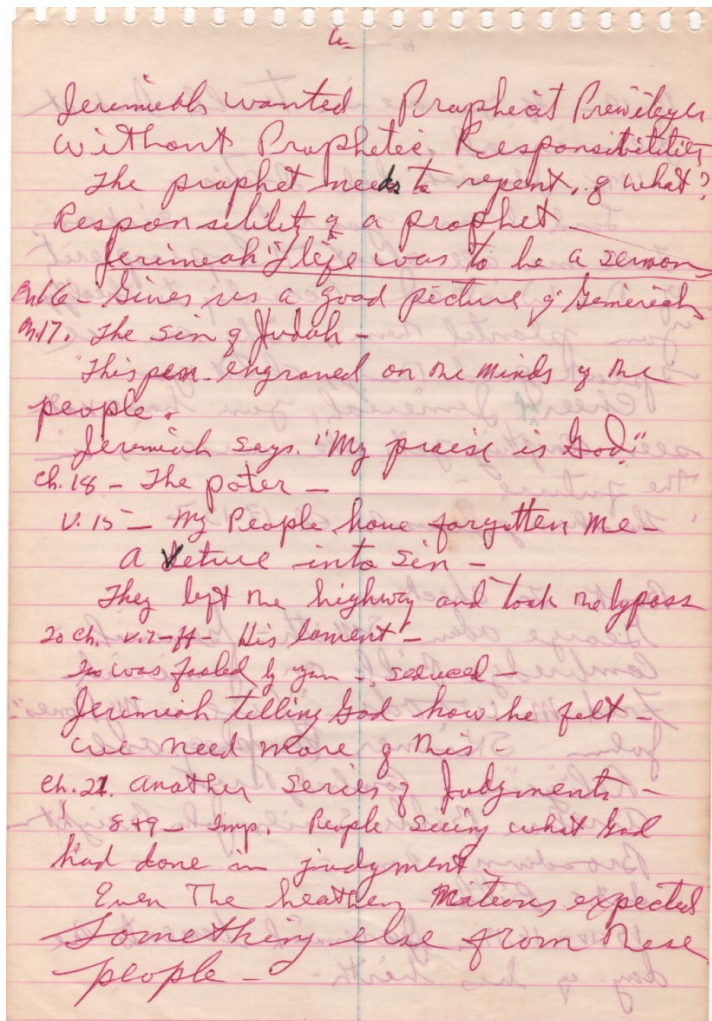 6
Jeremiah wanted Prophecit Previleges
without Prophetic Responsibilities
The prophet needs to repent, of what?
Responsibility of a prophet
Jeremeah's life was to be a sermon
Ch16 - Gives us a good picture of Jemeriah
Ch17. The sin of Judah -
This pen. engraved on the minds of the
people.
Jeremiah says. "My praise is God"
Ch. 18 - The poter -
V. 15 - My People have forgotten me -
A veture into sin -
They left the highway and took the bypass
20 ch. v. 7-ff - His lament -
was fooled by you -, seduced -
Jeremiah telling God how he felt -
we need more of this -
Ch. 21. Another series of Judgments -
8+9 - Imp. People seeing what God
had done in judgment
Even The heathen Nations expected
Something else from these
people -